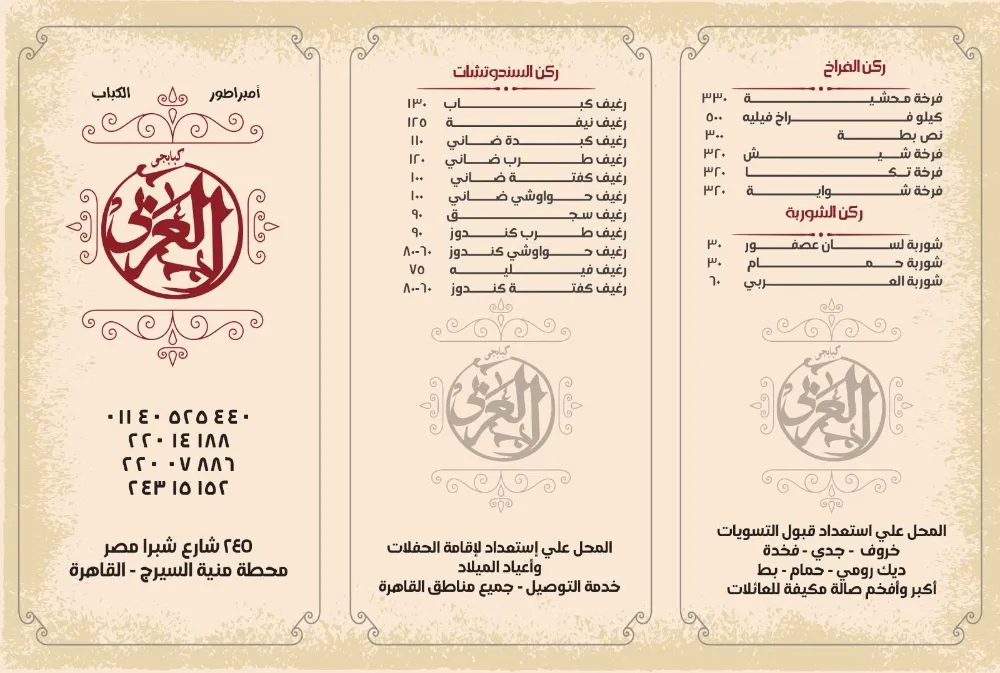 ركن الفراخ
فرخة محشية ٣٣٠
كيلو فراخ فيليه ٥٠٠
نص بطة ٣٠٠
فرخة شيش ٣٢٠
فرخة تكا ٣٢٠
فرخة شواية ٣٢٠
ركن الشوربة
شوربة لسان عصفور ٣٠
شوربة حمام ٣٠
شوربة العربي ٦٠
كبابجي
العربي
المحل علي استعداد قبول التسويات
خروف - جدي - فخدة
ديك رومي - حمام - بط
أكبر وأفخم صالة مكيفة للعائلات
ركن السندوتشات
رغيف كباب ١٣٠
رغيف نيفة ١٢٥
رغيف كبدة ضاني ١١٠
رغيف طرب ضاني ١٢٠
رغيف كفتة ضاني ١٠٠
رغيف حواوشي ضاني ١٠٠
رغيف سجق ٩٠
رغيف طرب كندوز ٩٠
رغيف حواوشي كندوز ٦٠-٨٠
رغيف فيليه ٧٥
رغيف كفتة كندوز ٦٠-٨٠
كبابجي
العربي
المحل علي إستعداد لإقامة الحفلات
وأعياد الميلاد
خدمة التوصيل - جميع مناطق القاهرة
أمبراطور الكباب
كبابجي
العربي
٠١١ ٤٠ ٥٢٥ ٤٤٠
٢٢٠ ١٤ ١٨٨
٢٢٠ ٠٧ ٨٨٦
٢٤٣ ١٥ ١٥٢
٢٤٥ شارع شبرا مصر
محطة منية السيرج - القاهرة